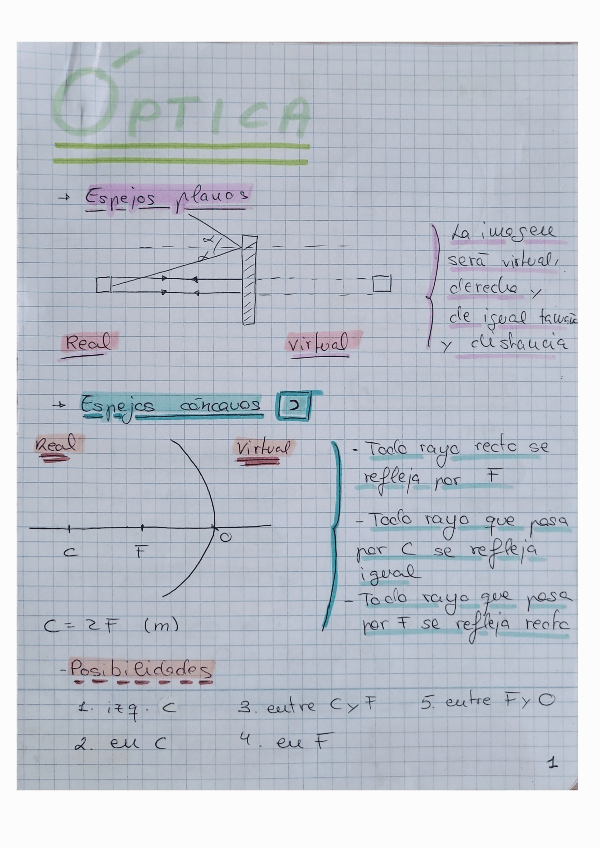 ÓPTICA
→ Espejos planos
α
α
La imagen
será virtual,
derecha y
de igual tamaño
y distancia
Real
Virtual
→ Espejos cóncavos
Real
Virtual
C
F
O
- Todo rayo recto se
refleja por F
- Todo rayo que pasa
por C se refleja
igual
- Todo rayo que pasa
por F se refleja recto
C = 2F (m)
- Posibilidades
1. izq. C
3. entre C y F
5. entre F y O
2. en C
4. en F
1